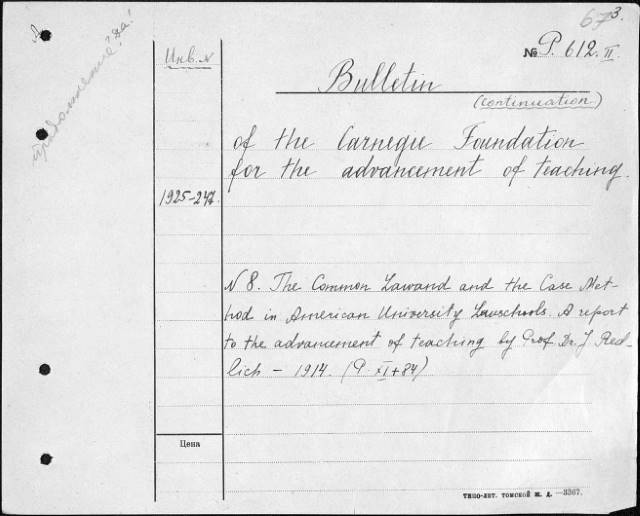 673.
№ P. 612. II
Инв. №
Bulletin
(continuation)
of the Carnegie Foundation
for the advancement of teaching.
1925-247.
N 8. The Common Lawand and the Case Met-
hod in American University Lawschools. A report
to the advancement of teaching by Prof. Dr. J. Red-
lich – 1914. (P. XI+84)
Цена
ТИПО-ЛИТ. ТОМСКОЙ Ж. Д. —3367.